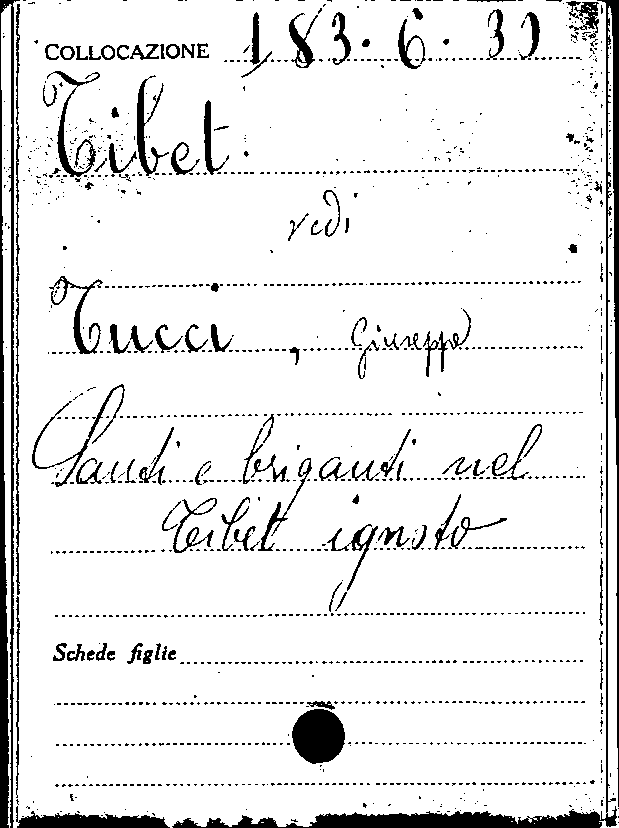 COLLOCAZIONE 183. 6. 30
Tibet.
vedi
Tucci, Giuseppe
Santi e briganti nel
Tibet ignoto
Schede figlie